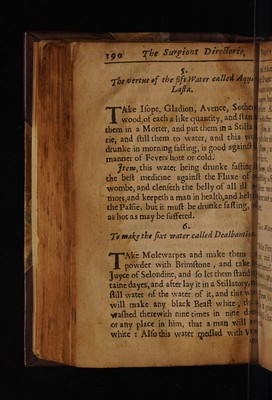 190 The Surgions Directorie,
5.
The vertue of the fift Water called Aqua
Lasta.
TAke Isope, Gladion, Avence, Sothern
wood, of each a like quantity, and stam
them in a Morter, and put them in a Stilla
rie, and still them to water, and this
drunke in morning fasting, is good against
manner of Fevers hote or cold.
Item, this water being drunke fasting
the best medicine against the Fluxe of
wombe, and clenseth the belly of all ill
mors, and keepeth a man in health, and helpe
the Palsie, but it must be drunke fasting,
as hot as may be suffered.
6.
To make the sixt water called Dealbantis
TAke Molewarpes and make them
powder with Brimstone, and take
Juyce of Selondine, and so let them stand
taine dayes, and after lay it in a Stillatory,
still water of the water of it, and this wa
will make any black Beast white,
washed therewith nine times in nine d
or any place in him, that a man will
white : Also this water medled with V